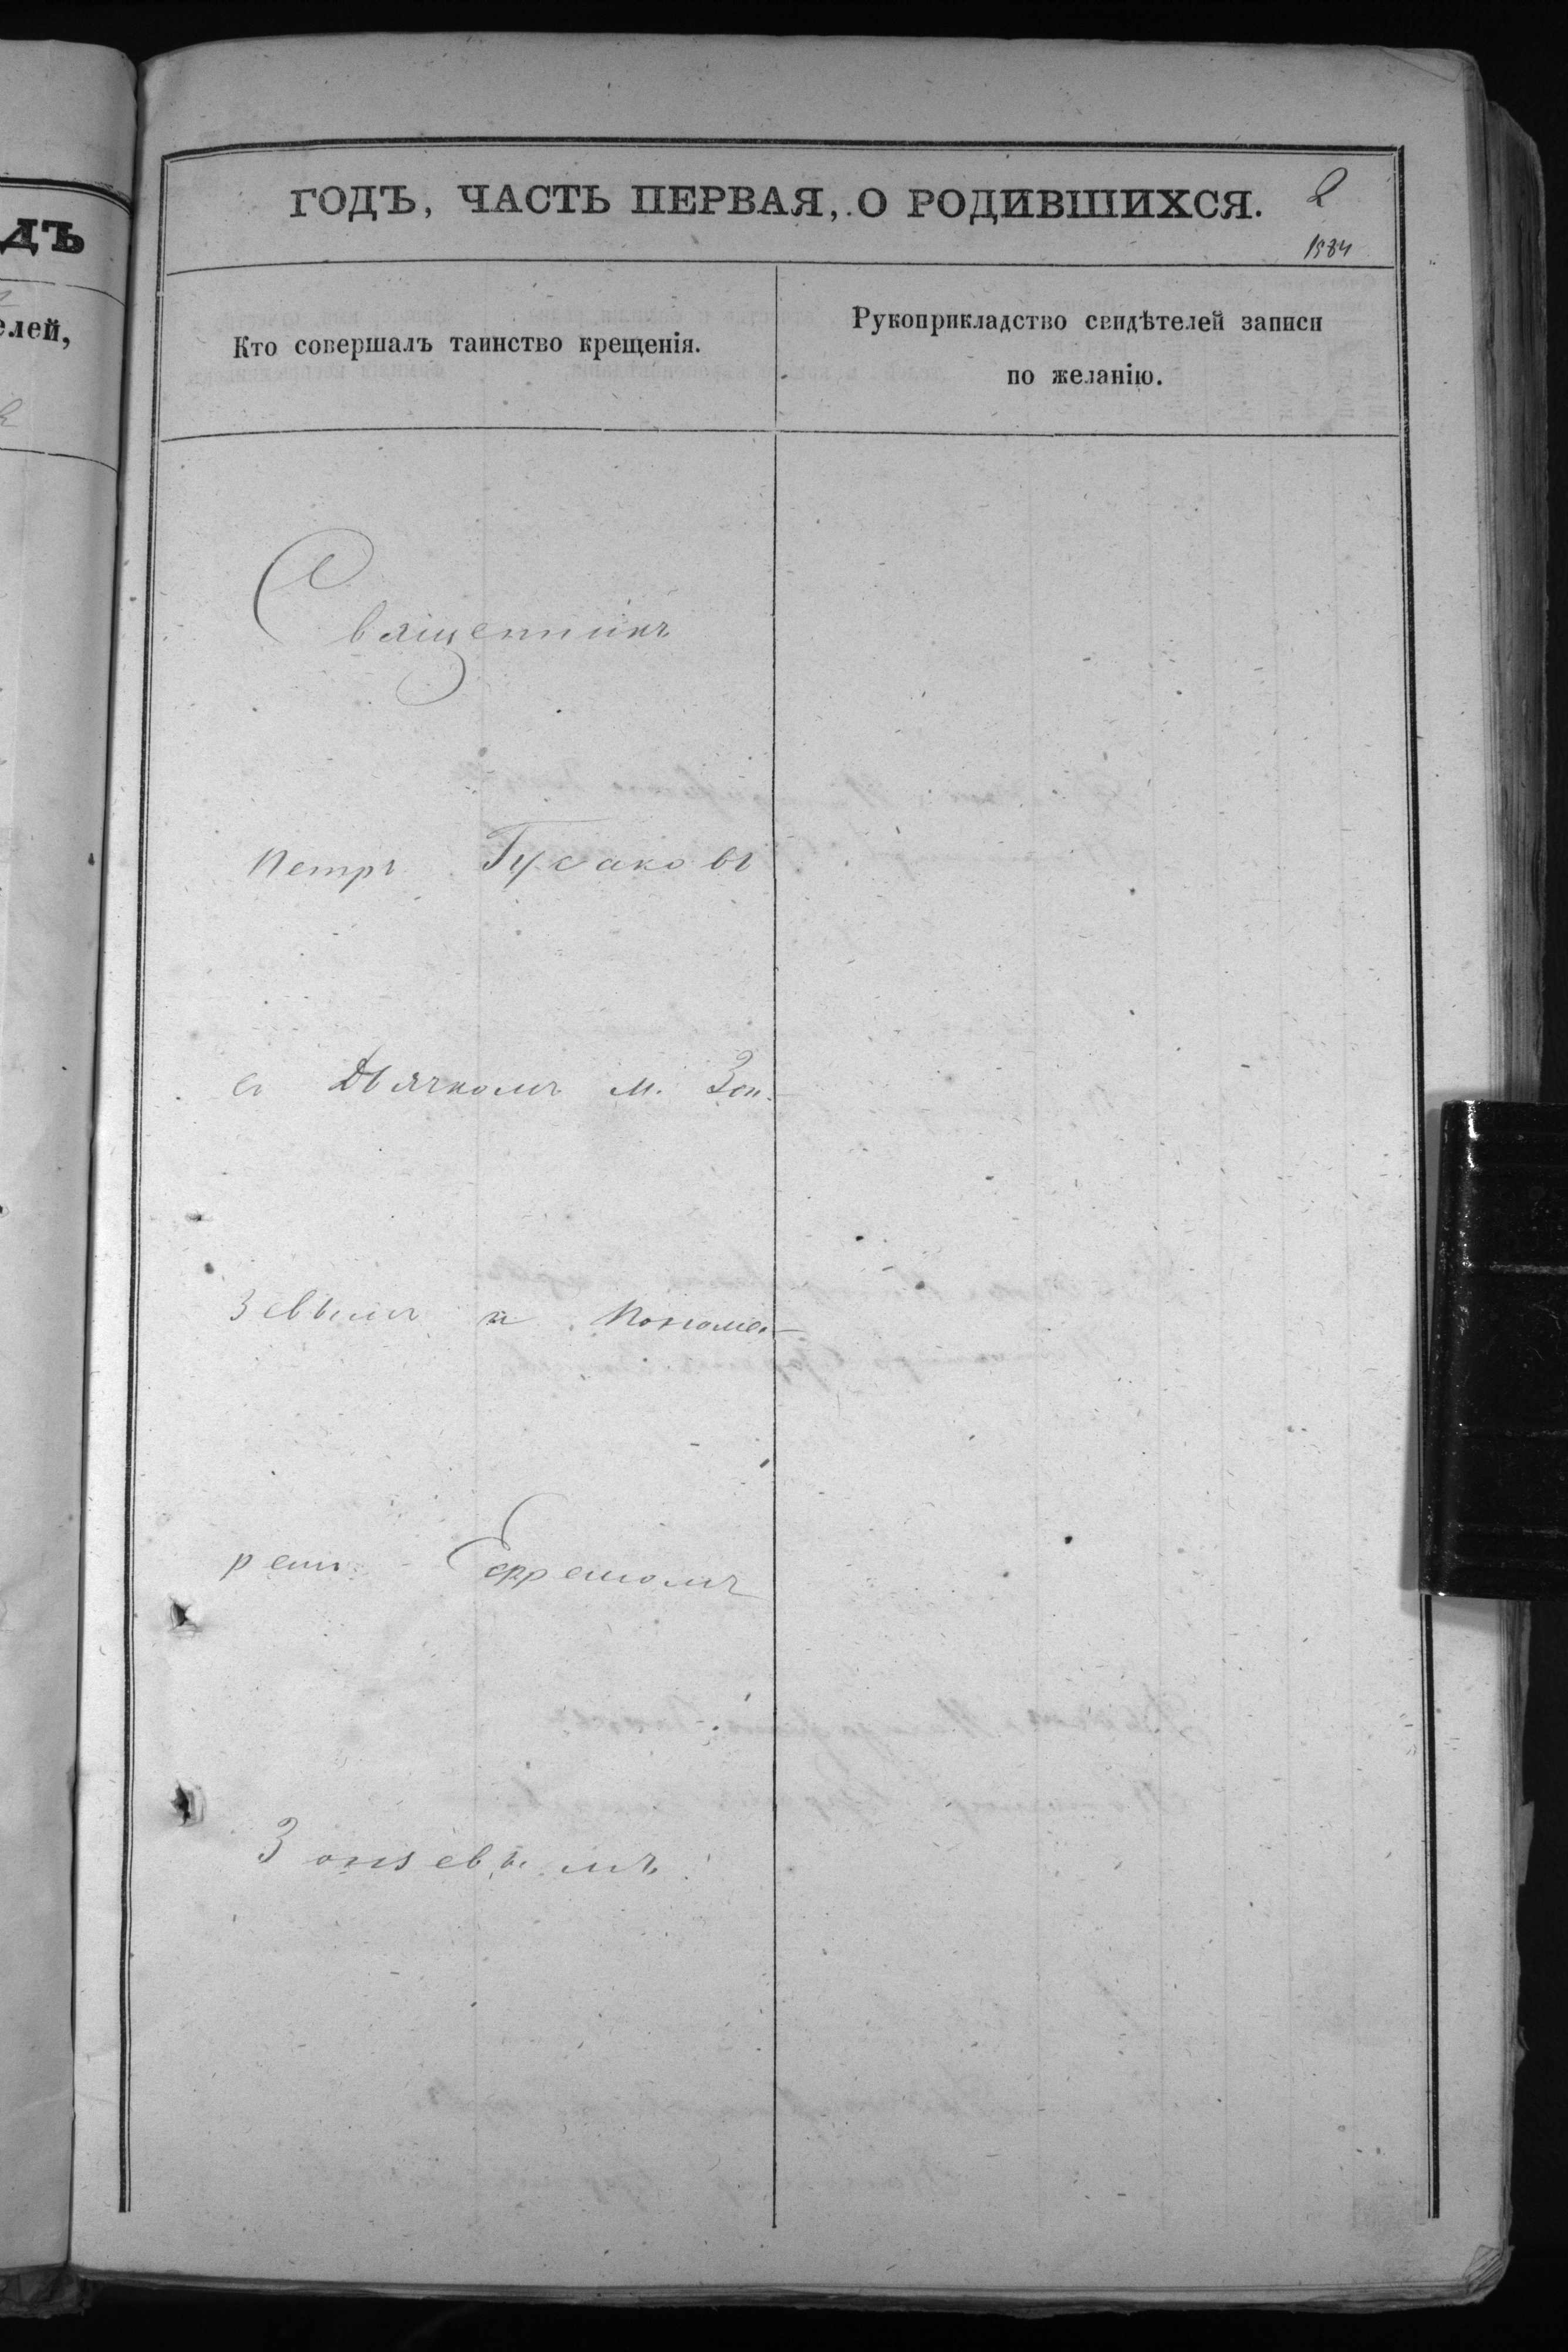 ГОДЪ, ЧАСТЬ ПЕРВАЯ, О РОДИВШИХСЯ.
2
1984
ДЪ
елей,
Кто совершалъ таинство крещенія.
Рукоприкладство свидѣтелей записи
по желанію.
Священникъ
Петръ Гусаковъ
съ Дьячкомъ М. Зон-
зевымъ и Понома-
ремъ Ефремомъ
Зонзевымъ